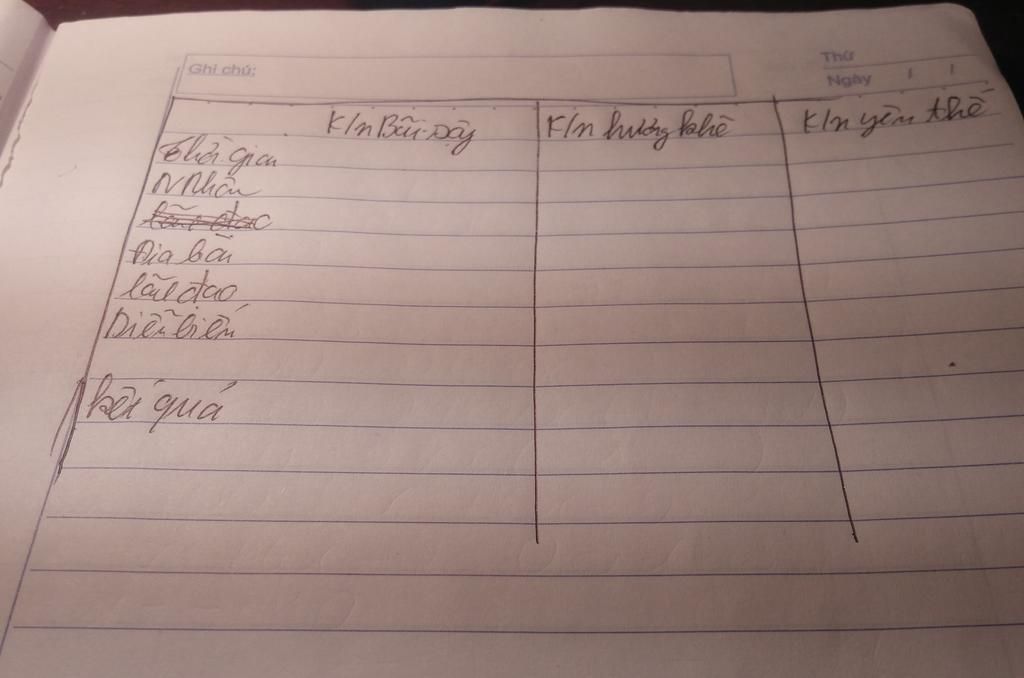 Ghi chú: Thứ
Ngày / /
K/n Bãi Sậy K/n hương khê K/n yên thế
Thời gian
N Nhân
lãnh đạo
Địa bàn
lãnh đạo
Diễn biến
kết quả